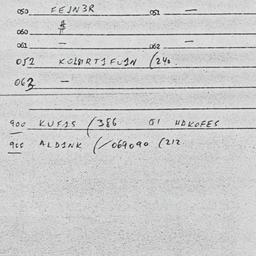 050 FEJN3R 051 —
060 $
061 — 062 —
052 KOLORTIFUJN (240
063 —
900 KUFIS (386 01 HDKOFES
905 ALDINK (/069090 (212